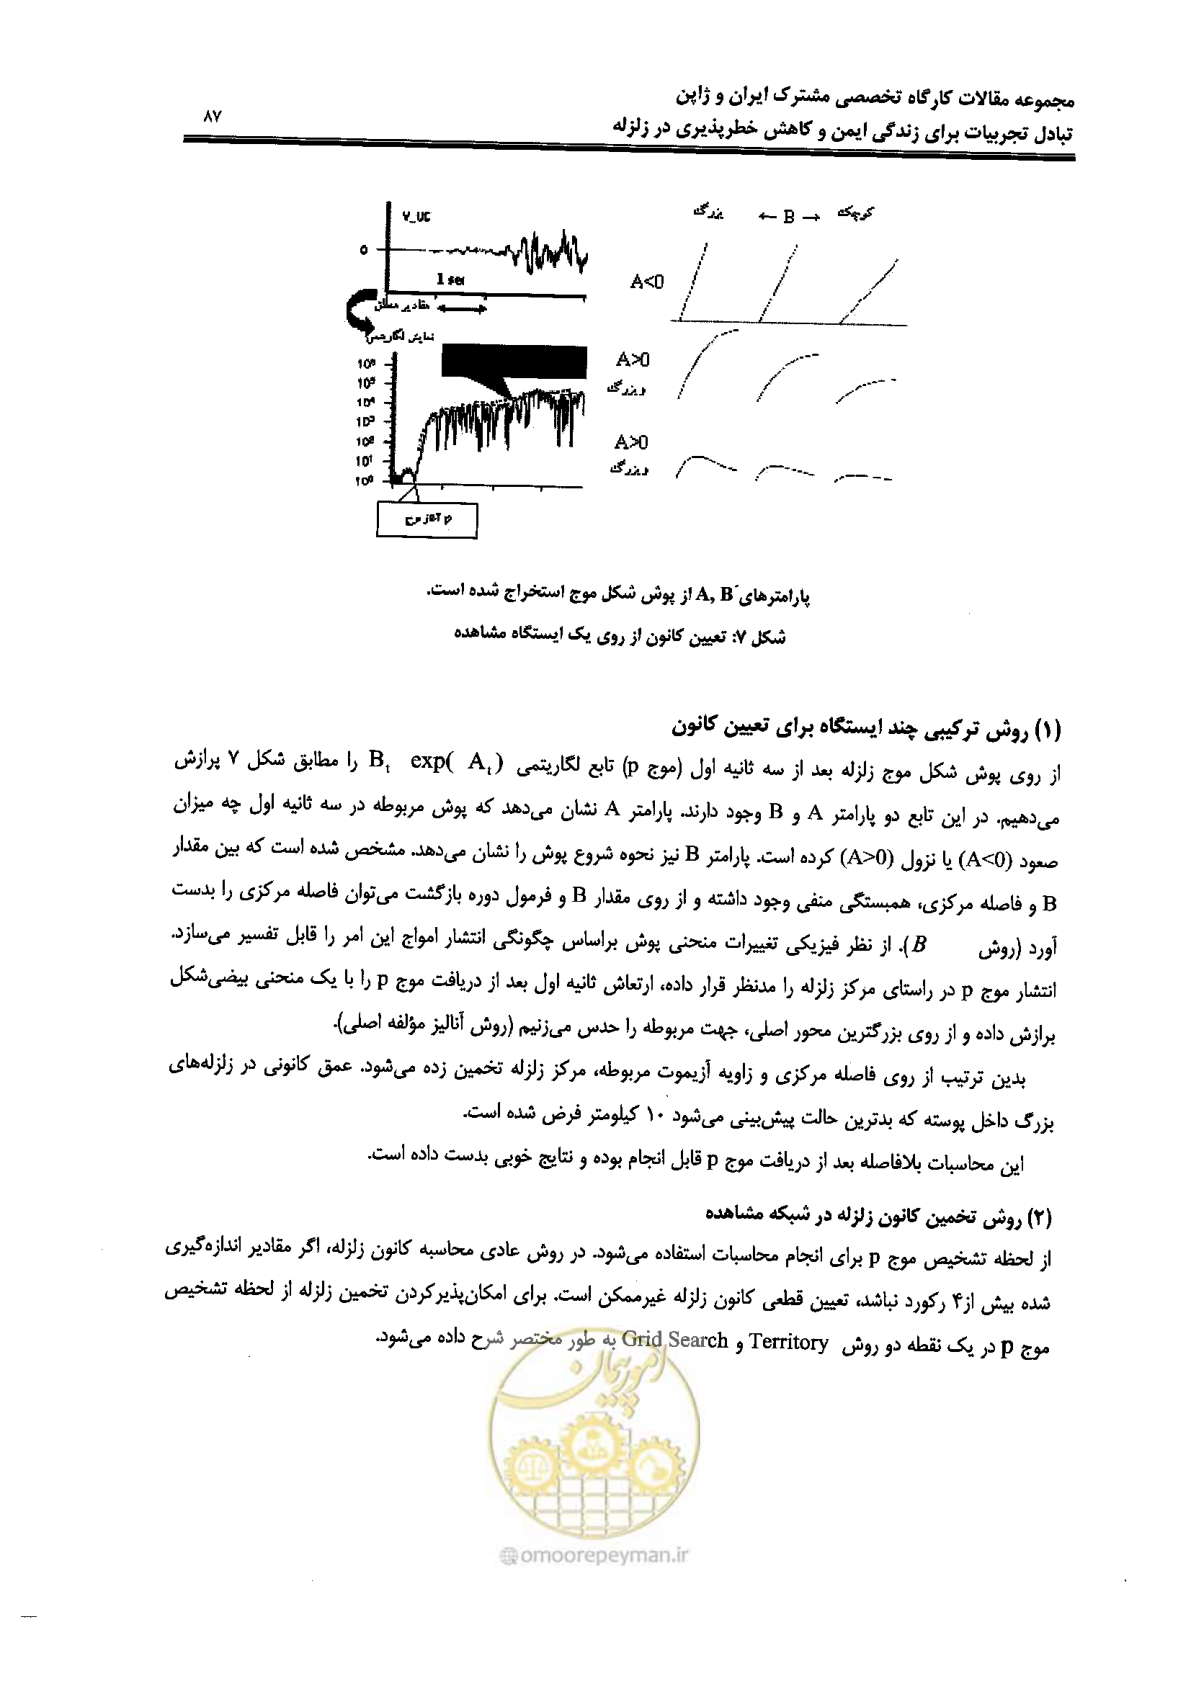 مجموعه مقالات کارگاه تخصصی مشترک ایران و ژاپن
تبادل تجربیات برای زندگی ایمن و کاهش خطرپذیری در زلزله
۸۷
V_UD
0
1 sec
مقادیر مطلق
نمایش لگاریتمی
10⁶
10⁵
10⁴
10³
10²
10¹
10⁰
آغاز موج p
بزرگ ← B → کوچک
A<0
A>0
و بزرگ
A>0
و بزرگ
پارامترهای A, B از پوش شکل موج استخراج شده است.
شکل ۷: تعیین کانون از روی یک ایستگاه مشاهده
(۱) روش ترکیبی چند ایستگاه برای تعیین کانون
از روی پوش شکل موج زلزله بعد از سه ثانیه اول (موج p) تابع لگاریتمی Bt exp( At) را مطابق شکل ۷ پرازش
می‌دهیم. در این تابع دو پارامتر A و B وجود دارند. پارامتر A نشان می‌دهد که پوش مربوطه در سه ثانیه اول چه میزان
صعود (A<0) یا نزول (A>0) کرده است. پارامتر B نیز نحوه شروع پوش را نشان می‌دهد. مشخص شده است که بین مقدار
B و فاصله مرکزی، همبستگی منفی وجود داشته و از روی مقدار B و فرمول دوره بازگشت می‌توان فاصله مرکزی را بدست
آورد (روش B). از نظر فیزیکی تغییرات منحنی پوش براساس چگونگی انتشار امواج این امر را قابل تفسیر می‌سازد.
انتشار موج p در راستای مرکز زلزله را مدنظر قرار داده، ارتعاش ثانیه اول بعد از دریافت موج p را با یک منحنی بیضی‌شکل
برازش داده و از روی بزرگترین محور اصلی، جهت مربوطه را حدس می‌زنیم (روش آنالیز مؤلفه اصلی).
بدین ترتیب از روی فاصله مرکزی و زاویه آزیموت مربوطه، مرکز زلزله تخمین زده می‌شود. عمق کانونی در زلزله‌های
بزرگ داخل پوسته که بدترین حالت پیش‌بینی می‌شود ۱۰ کیلومتر فرض شده است.
این محاسبات بلافاصله بعد از دریافت موج p قابل انجام بوده و نتایج خوبی بدست داده است.
(۲) روش تخمین کانون زلزله در شبکه مشاهده
از لحظه تشخیص موج p برای انجام محاسبات استفاده می‌شود. در روش عادی محاسبه کانون زلزله، اگر مقادیر اندازه‌گیری
شده بیش از۴ رکورد نباشد، تعیین قطعی کانون زلزله غیرممکن است. برای امکان‌پذیرکردن تخمین زلزله از لحظه تشخیص
موج p در یک نقطه دو روش Territory و Grid Search به طور مختصر شرح داده می‌شود.
امور پیمان
@omoorepeyman.ir